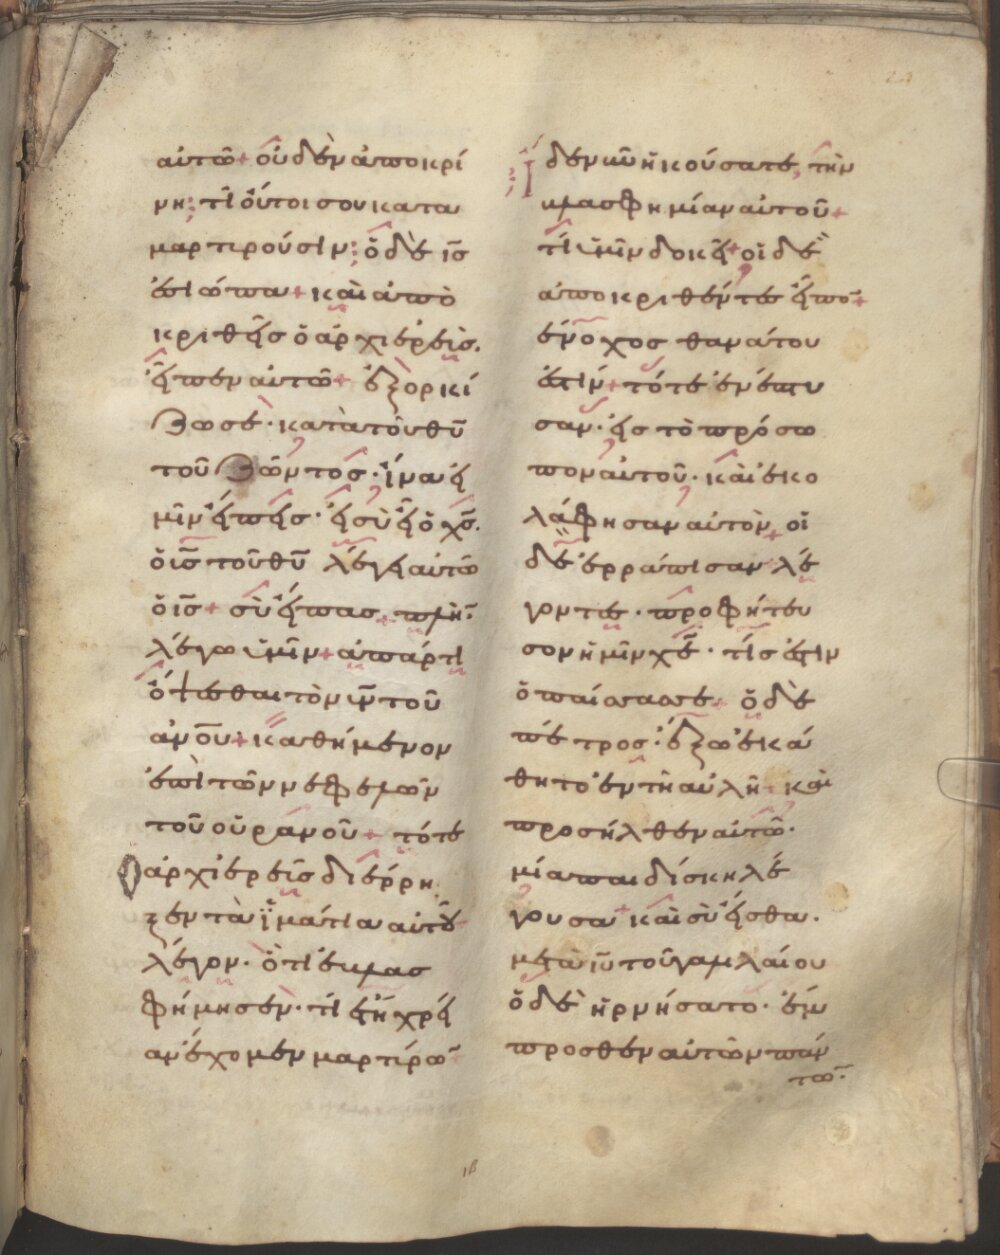 αὐτῶ + οὐδὲν ἀποκρί
νη; τί οὗτοι σου κατα
μαρτιροῦσιν; ὁ δὲ ις
ἐσιώπα + καὶ ἀπὸ
κριθεὶς ὁ ἀρχιερεὺς.
εἶπεν αὐτῶ + ἐξορκί
ζω σε · κατὰ τοῦ θυ
τοῦ ζῶντος · ἵνα εἰ
μῖν εἴπεις · εἰ σὺ εἶ ὁ χς.
ὁ ις τοῦ θυ λέγει αὐτῶ
ὁ ις + σὺ εἶπας + πλὴν
λέγω ὑμῖν + ἀπάρτι
ὄψεσθαι τὸν ὑν τοῦ
ανου + καθήμενον
ἐπὶ τῶν νεφελῶν
τοῦ οὐρανοῦ + τότε
ὁ ἀρχιερεὺς διέρρη
ξεν τὰ ἱμάτια αὐτοῦ
λέγον · ὅτι ἐβλασ
φήμησεν · τί ἔτι χρεί
αν ἔχομεν μαρτίρων
ἴδε νῦν ἠκούσατε, τὴν
βλασφημίαν αὐτοῦ +
τί ὑμῖν δοκεῖ + οἱ δὲ
ἀποκριθέντες εἶπον +
ἔνοχος θανάτου
ἐστίν + τότε ἐνέπτυ
σαν · εἰς τὸ πρόσω
πον αὐτοῦ · καὶ ἐκο
λάφησαν αὐτὸν οἱ
δὲ ἐρράπισαν λέ
γοντες · προφήτευ
σον ἡμῖν χε · τίς ἐστιν
ὁ παίσας σε + ὁ δὲ
πέτρος · ἔξω ἐκά
θητο ἐν τῆ αὐλῆ + καὶ
προσήλθεν αὐτῶ ·
μία παιδίσκη λέ
γουσα + καὶ σὺ εἶσθα ·
μετὰ ιυ τοῦ γαλιλαίου
ὁ δὲ ἠρνήσατο · ἔμ
προσθεν αὐτῶν πάν
των